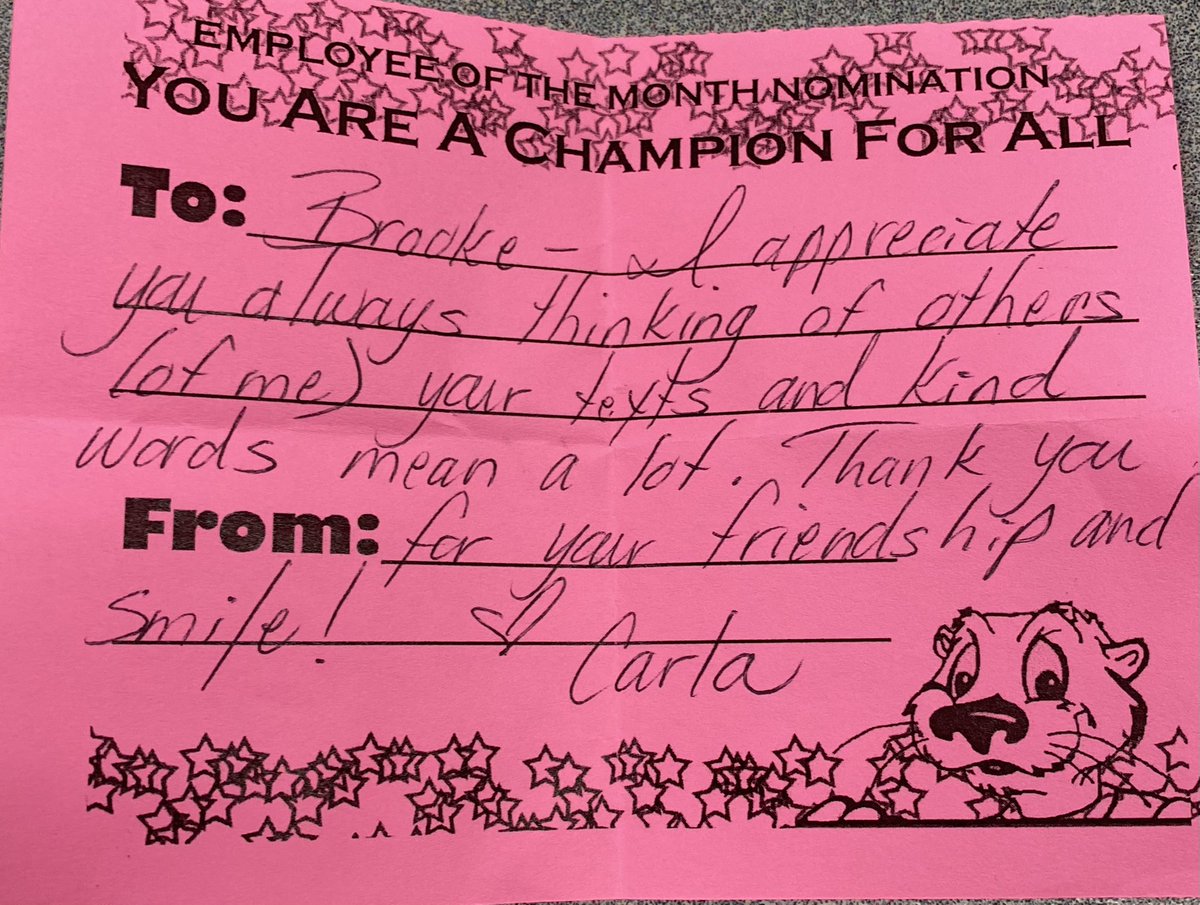 EMPLOYEE OF THE MONTH NOMINATION
YOU ARE A CHAMPION FOR ALL
To: Brooke - I appreciate
you always thinking of others
(of me) your texts and kind
words mean a lot. Thank you
From: for your friendship and
smile! ♡ Carla